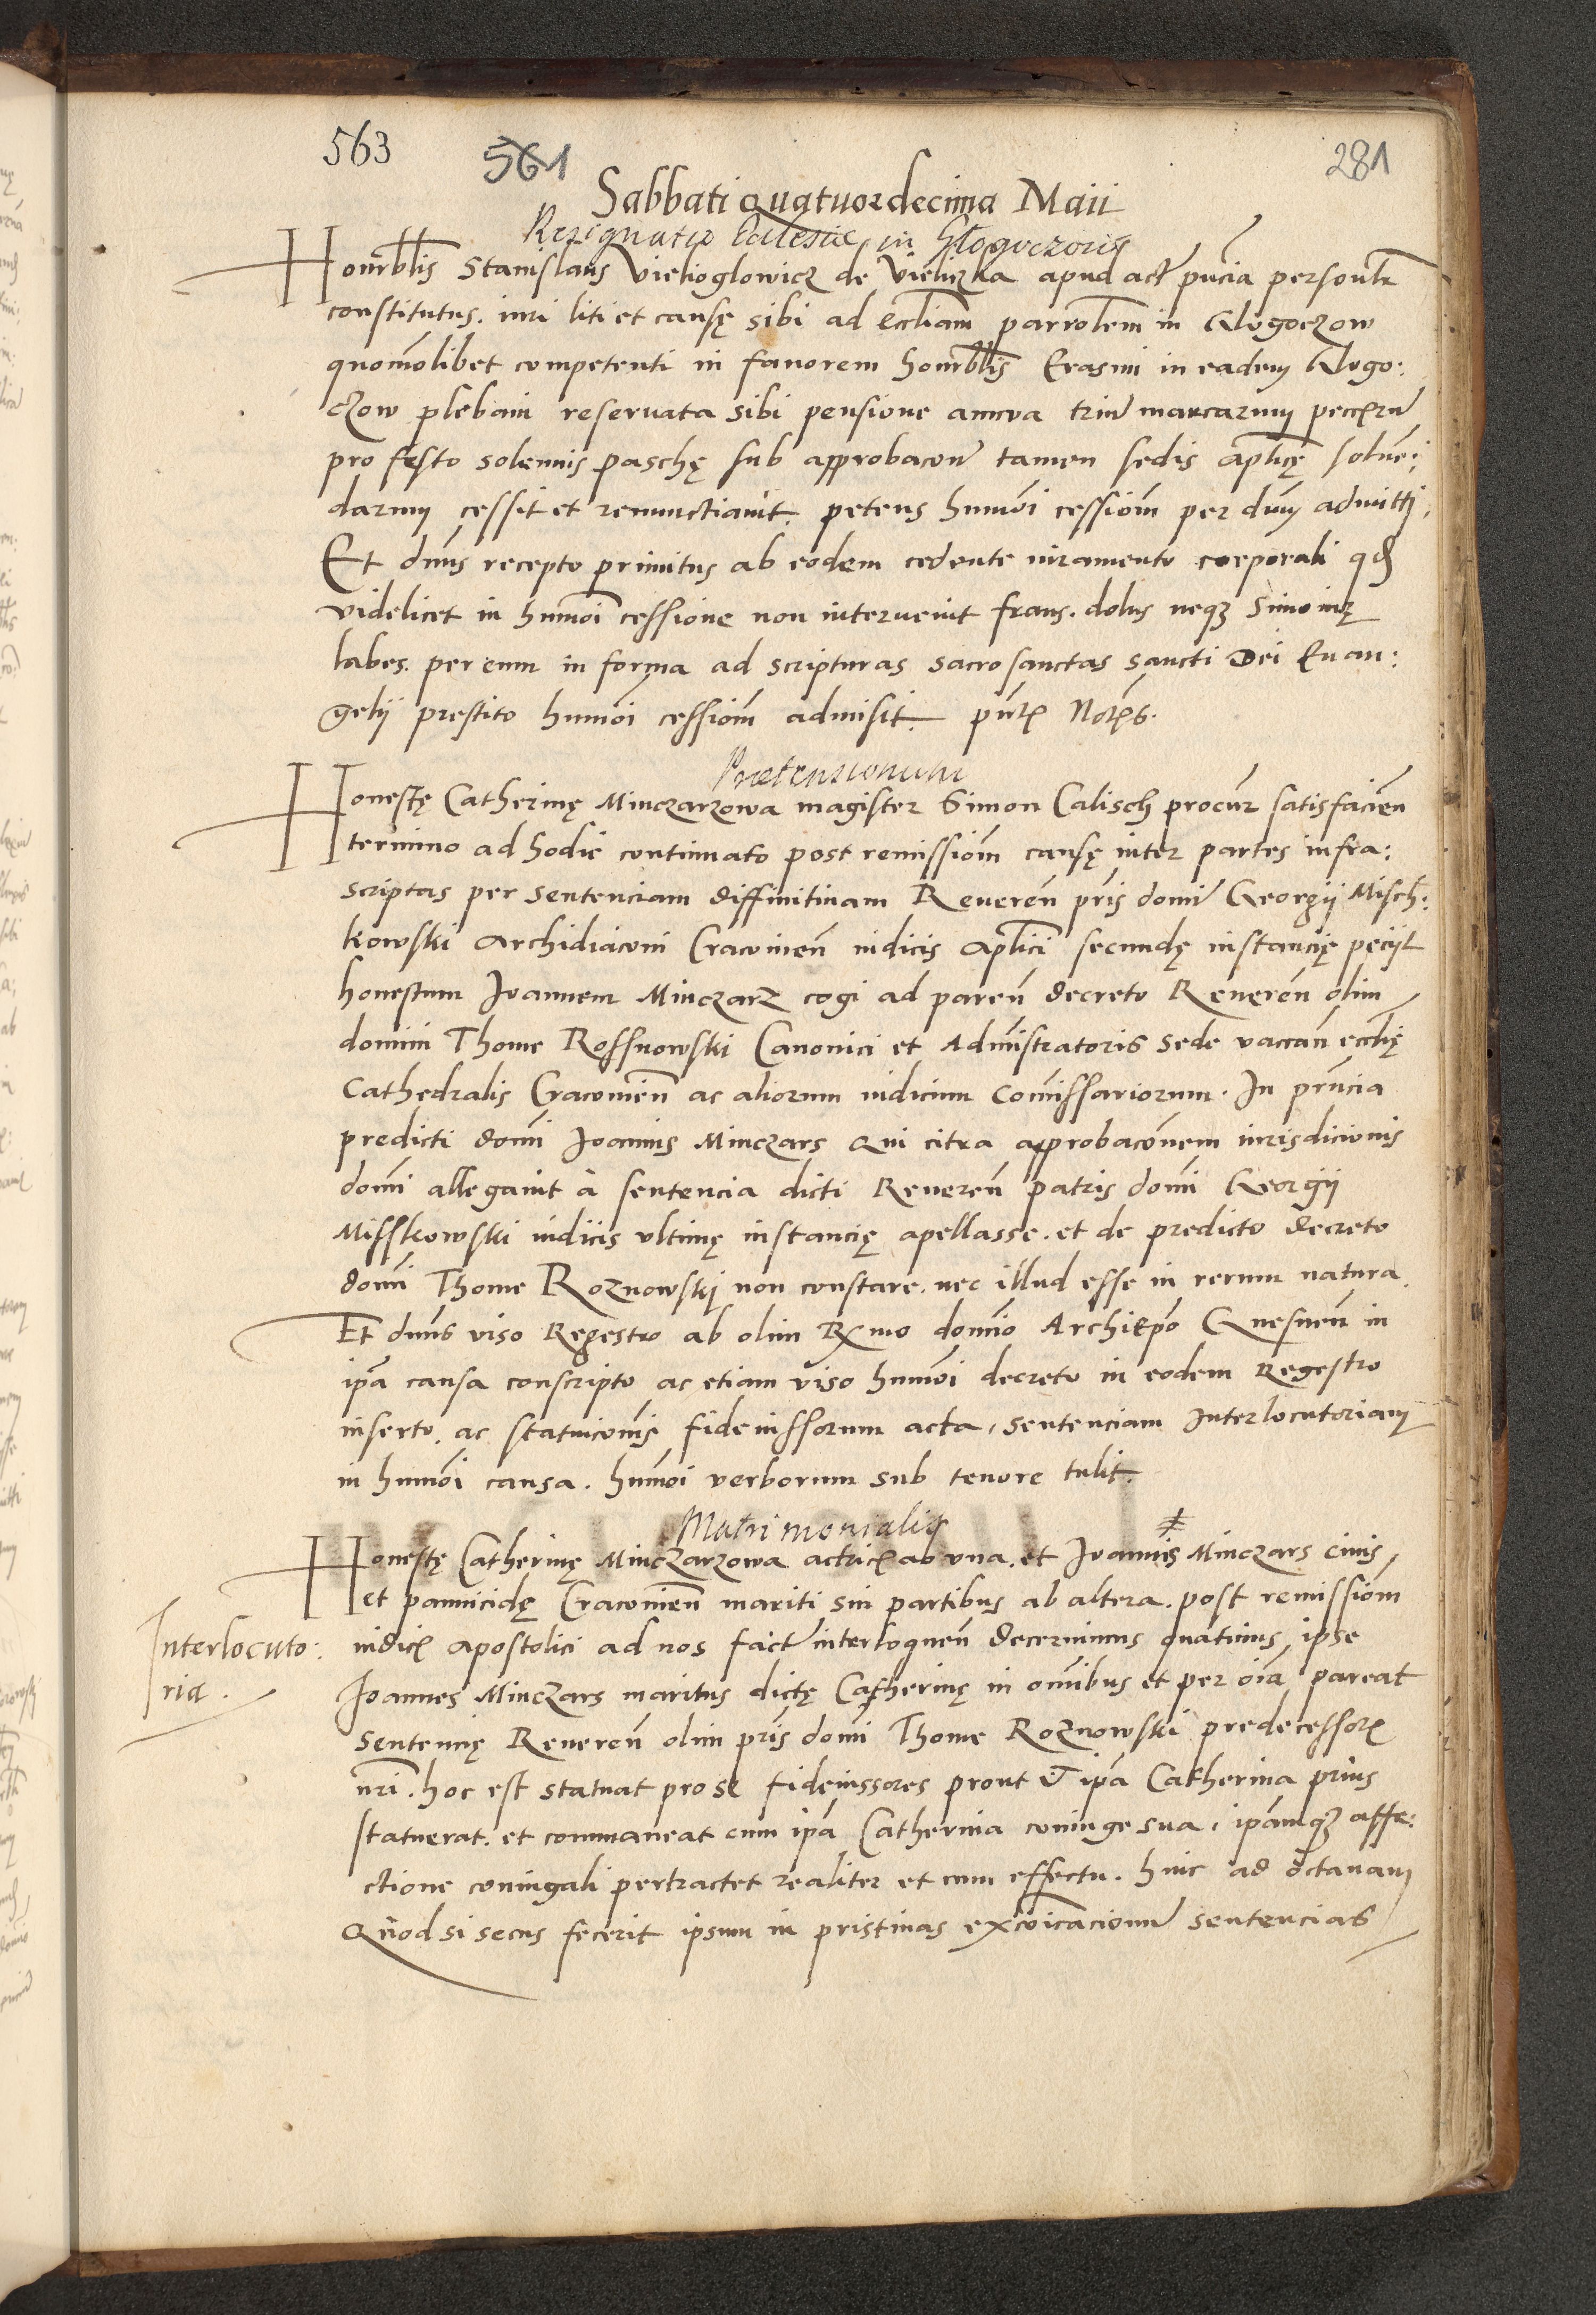 563 561 281
Sabbati quatuordecima Maii
Resignatio Eclesie in Glogoczoris
Honorablis Stanislaus Vielioglowicz de Vieliczka apud act pñcia personlr
constitutus. iuri liti et causę sibi ad eccliam parrolem in Glogoczow
quomolibet competenti in fauorem honorblis Erasmi in eadem Glogo:
czow plebani reseruata sibi pensione annua triũ marcarum pecc̃ru
pro festo solennis paschę sub approbacoñ tamen sedis aplicę soluẽ:
darum cessit et renunctiauit. petens hmõi cessiom per dnm admitti.
Et dnus recepto primitus ab eodem cedente iuramento corporali qd
videlicet in hmõi cessione non interuenit fraus. dolus neqz simonię
labes. per eum in forma ad scripturas sacrosanctas sancti Dei Euan:
gelij prestito hmõi cessiom admisit. pñt Norẽ.
Pretensionum
Honestę Catherinę Minczarzowa magister Simon Calisch procur satisfacien
termino ad hodie continuato post remissiom causę inter partes infra:
scriptas per sentenciam diffinitiuam Reueren pris domi Georgij Misch:
kowski Archidiaconi Cracouien iudicis aplici secundę instancię peciit
honestum Joannem Minczarz cogi ad paren decreto Reueren olim
domini Thome Rossnowski Canonici et Admistratoris sede vaccan ecclię
Cathedralis Cracouien ac aliorum iudicum Comissariorum. In pñcia
predicti domi Joannis Minczars qui citra approbaconem iurisdicionis
domi allegauit à sentencia dicti Reueren patris domi Georgij
Misskowski iudicis vltimę instancię apellasse. et de predicto decreto
domi Thome Roznowskj non constare. nec illud esse in rerum natura.
Et dnus viso Regestro ab olim Rxmo domio Archiepo Gnesnen in
ipa causa conscripto ac etiam viso hmõi decreto in eodem Regestro
inserto. ac statuicõis fideiussorum acta, sentenciam Interlocutoriam
in hmõi causa. hmõi verborum sub tenore tulit.
Matrimonialis
Honestę Catherinę Minczarzowa actricẽ ab vna. et Joannis Minczars ciuis
et pannicidę Cracouien mariti sui partibus ab altera. post remissiom
Interlocuto:
ria.
iudicẽ apostolici ad nos fact interloquen decernimus quatinus ipse
Joannes Minczars maritus dictę Catherinę in omibus et per oia pareat
sentencię Reueren olim pris domi Thome Roznowski predecessorẽ
nri. hoc est statuat pro se fideiussores prout & ipa Catherina prius
statuerat. et commaneat cum ipa Catherina coniuge sua, ipamqz affe:
ctione coniugali pertractet realiter et cum effectu. hinc ad octauam
Quod si secus fecerit ipsum in pristinas excoicacionũ sentencias